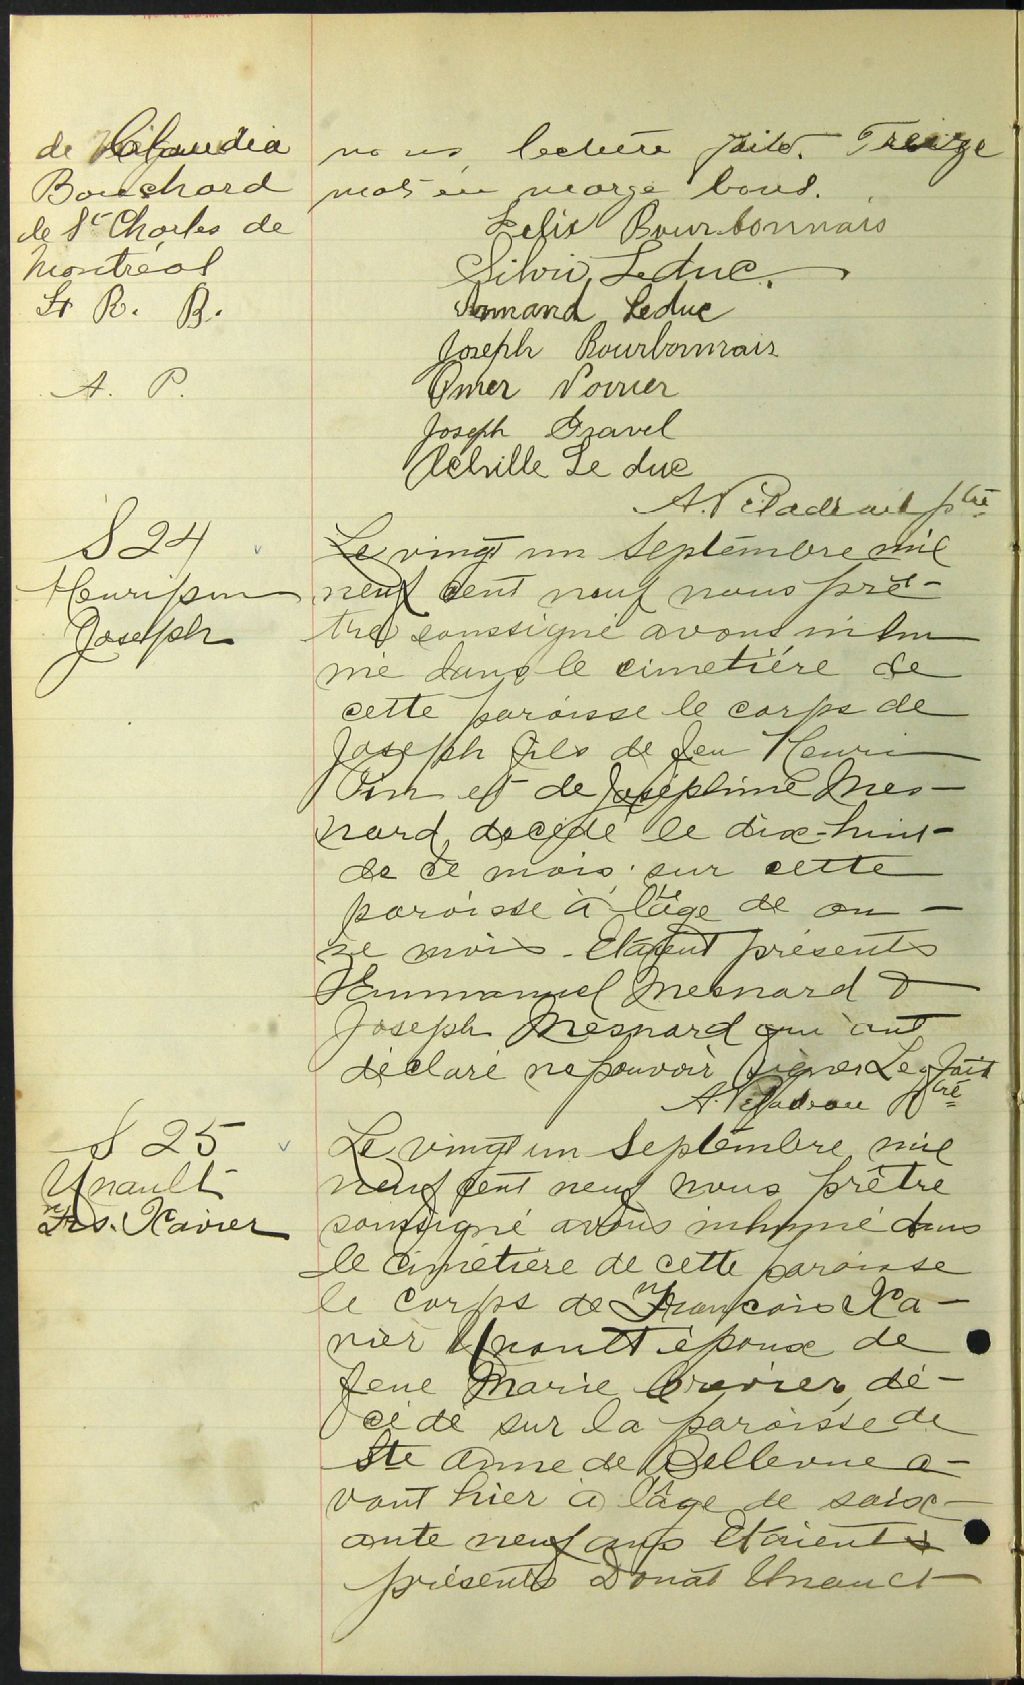 de Claudia
Bouchard
de St Charles de
Montréal
R. B.
A. P.
nous, lecture faite. Treize
mots en marge bons.
Felix Bourbonnais
Silvio Leduc.
Armand Leduc
Joseph Bourbonnais
Omer Poirier
Joseph Gravel
Achille Le duc
A. Piladeau ptre
S 24
Henripin
Joseph
Le vingt un Septembre mil
neuf cent neuf nous prê-
tre soussigné avons inhu
mé dans le cimetière de
cette paroisse le corps de
Joseph fils de feu Henri
Pin et de Joséphine Mes-
nard, décédé le dix-huit
de ce mois sur cette
paroisse à l'âge de on-
ze mois. Etaient présents
Emmanuel Mesnard &
Joseph Mesnard qui ont
déclaré ne pouvoir signer Lec. faite
A. Piladeau ptre
S 25
Unault
Frs. Xavier
Le vingt un Septembre mil
neuf cent neuf nous prêtre
soussigné avons inhumé dans
le cimetière de cette paroisse
le corps de François Xa-
vier Unault époux de
feue Marie Crevier, dé-
cédé sur la paroisse de
Ste Anne de Bellevue a-
vant hier à l'âge de soix-
ante neuf ans Etaient
présents Donat Unault